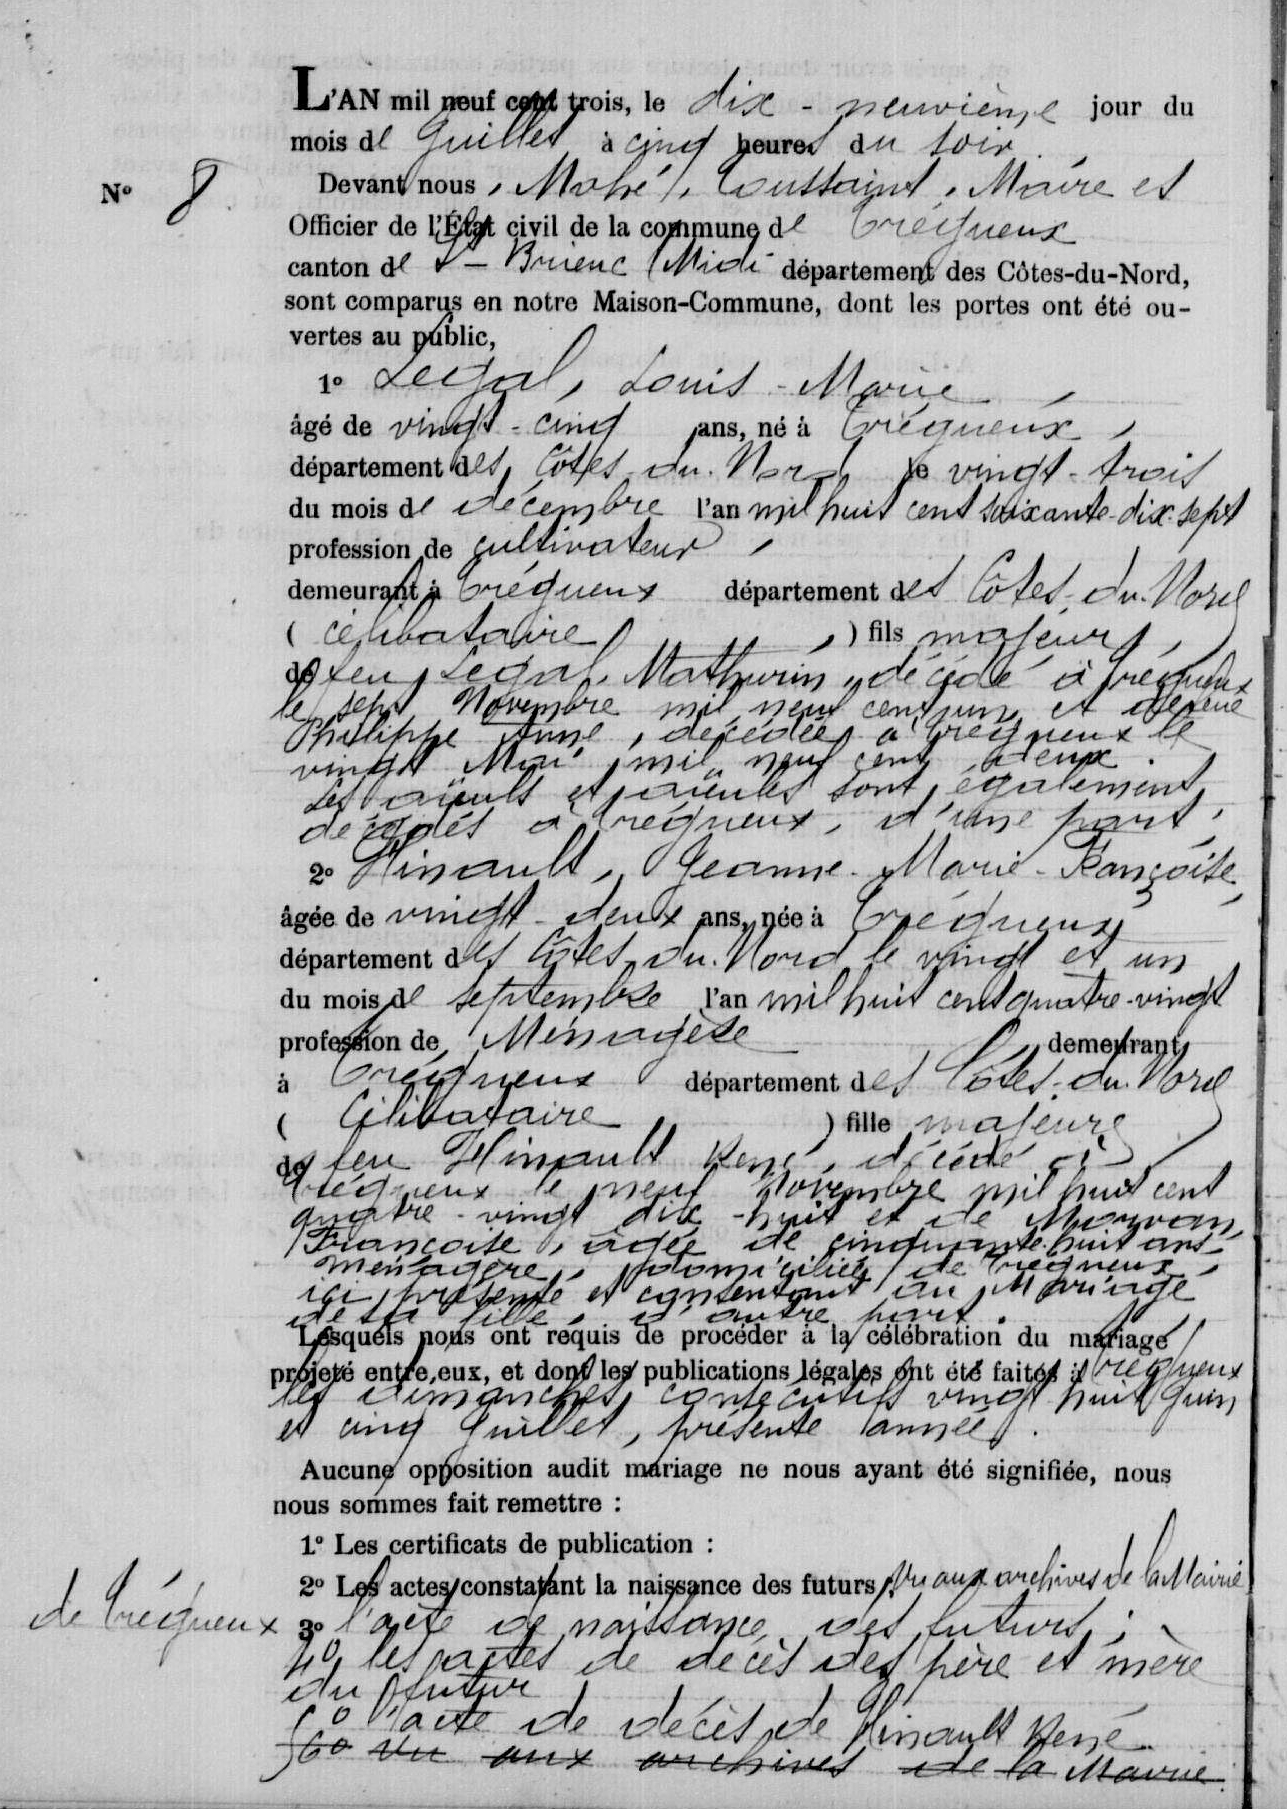 L'AN mil neuf cent trois, le dix-neuvième jour du
mois de Juillet à cinq heures du soir.
N° 8 Devant nous, Mahé, Toussaint, Maire et
Officier de l'État civil de la commune de Trégueux
canton de St-Brieuc (Midi département des Côtes-du-Nord,
sont comparus en notre Maison-Commune, dont les portes ont été ou-
vertes au public,
1° Legal, Louis-Marie,
âgé de vingt-cinq ans, né à Trégueux,
département des Côtes-du-Nord le vingt-trois
du mois de décembre l'an mil huit cent soixante-dix-sept
profession de cultivateur,
demeurant à Trégueux département des Côtes-du-Nord
( célibataire, ) fils majeur,
de feu Legal, Mathurin, décédé à Trégueux
le sept Novembre mil neuf cent un et de feue
Philippe Anne, décédée à Trégueux le
vingt Mai mil neuf cent deux.
Les aïeuls et aïeules sont également
décédés à Trégueux, d'une part,
2° Hinault, Jeanne-Marie-Françoise,
âgée de vingt-deux ans, née à Trégueux
département des Côtes-du-Nord le vingt et un
du mois de septembre l'an mil huit cent quatre-vingt
profession de Ménagère, demeurant
à Trégueux département des Côtes-du-Nord
( Célibataire ) fille majeure
de feu Hinault René, décédé à
Trégueux le neuf Novembre mil huit cent
quatre-vingt dix-huit et de Morvan,
Françoise, âgée de cinquante-huit ans,
ménagère, domiciliée de Trégueux,
ici présente et consentant au Mariage
de sa fille, d'autre part.
Lesquels nous ont requis de procéder à la célébration du mariage
projeté entre eux, et dont les publications légales ont été faites à Trégueux
les dimanches consécutifs vingt huit Juin
et cinq Juillet, présente année.
Aucune opposition audit mariage ne nous ayant été signifiée, nous
nous sommes fait remettre :
1° Les certificats de publication :
2° Les actes constatant la naissance des futurs, vu aux archives de la Mairie
de Trégueux
3° l'acte de naissance des futurs ;
4° les actes de décès des père et mère
du futur
5° l'acte de décès de Hinault René.
6° vu aux archives de la Mairie.